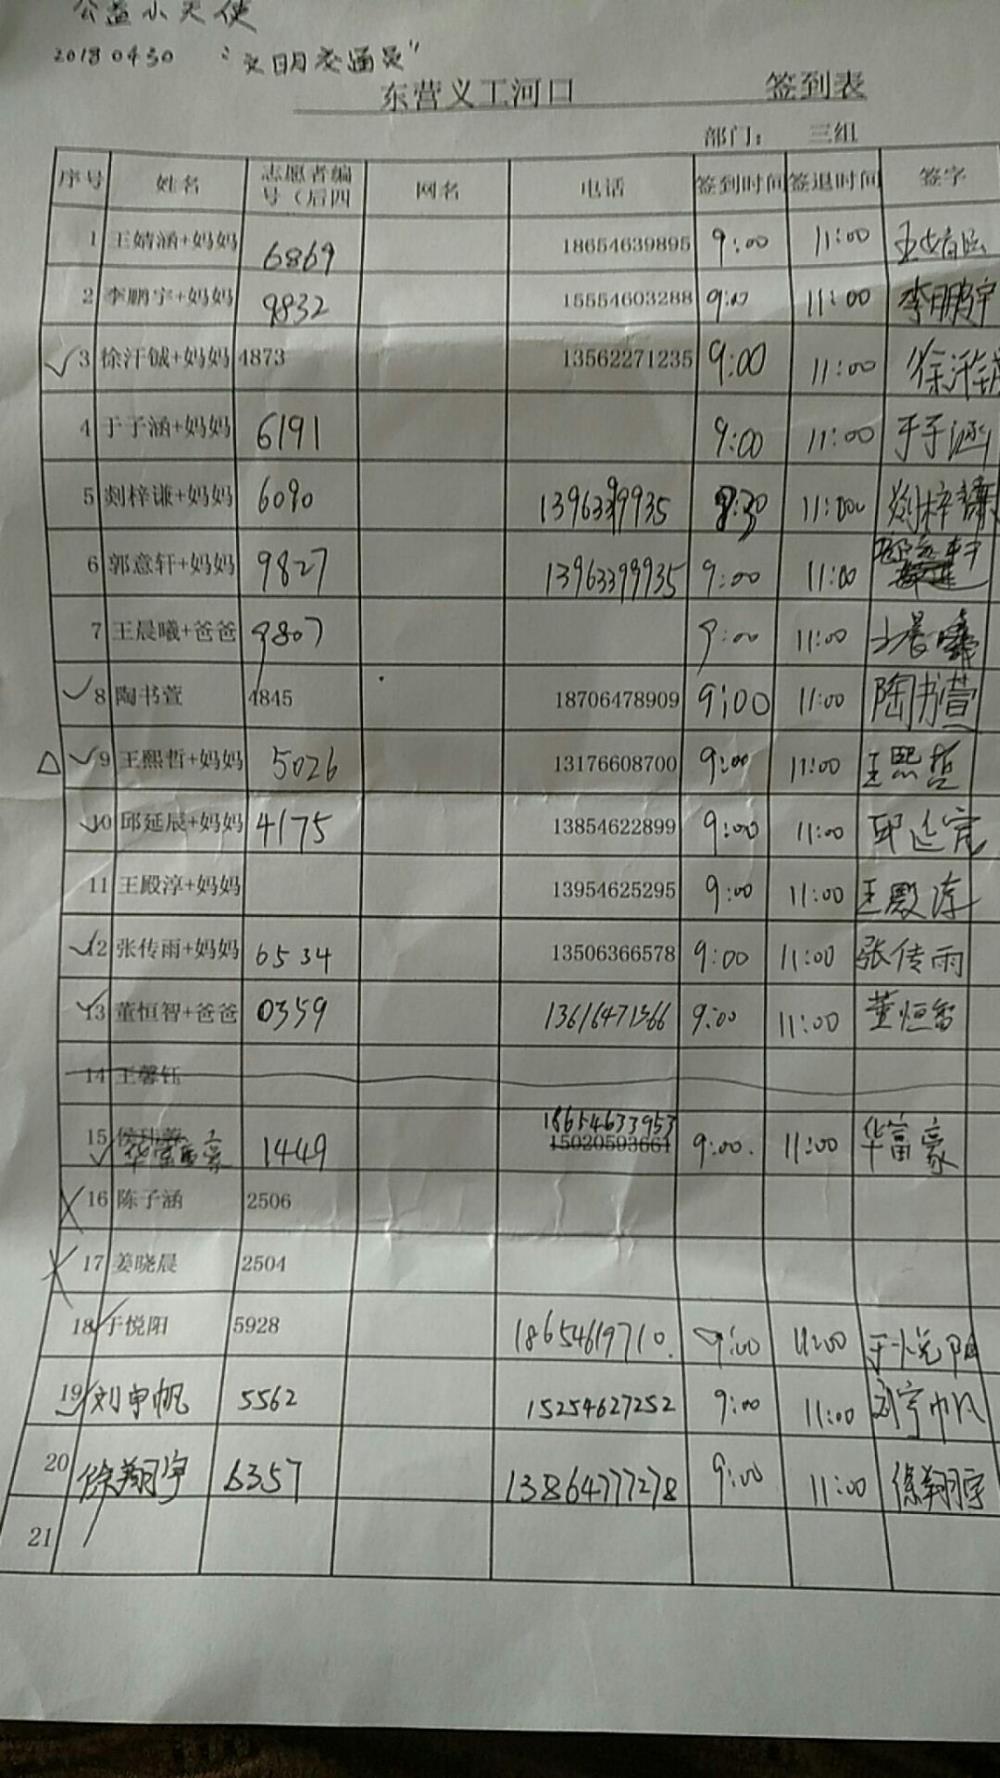 公益小天使
20180430 “文明交通员”
东营义工河口 签到表
部门： 三组
序号 姓名 志愿者编号（后四 网名 电话 签到时间 签退时间 签字
1 王婧涵+妈妈 6869 18654639895 9:00 11:00 王婧涵
2 李鹏宇+妈妈 9832 15554603288 9:00 11:00 李鹏宇
3 徐汘铖+妈妈 4873 13562271235 9:00 11:00 徐汘铖
4 于子涵+妈妈 6191 9:00 11:00 于子涵
5 剡梓谦+妈妈 6090 13963399935 8:30 11:00 剡梓谦
6 郭意轩+妈妈 9827 13963399935 9:00 11:00 郭意轩
7 王晨曦+爸爸 9807 9:00 11:00 王晨曦
8 陶书萱 4845 18706478909 9:00 11:00 陶书萱
9 王熙哲+妈妈 5026 13176608700 9:00 11:00 王熙哲
10 邱延宸+妈妈 4175 13854622899 9:00 11:00 邱延宸
11 王殿淳+妈妈 13954625295 9:00 11:00 王殿淳
12 张传雨+妈妈 6534 13506366578 9:00 11:00 张传雨
13 董恒智+爸爸 0359 13616471566 9:00 11:00 董恒智
14 王馨钰
15 华富豪 1449 18654633953 15020593661 9:00. 11:00 华富豪
16 陈子涵 2506
17 姜晓晨 2504
18 于悦阳 5928 18654619710. 9:00 11:00 于悦阳
19 刘宇帆 5562 15254627252 9:00 11:00 刘宇帆
20 徐翔宇 6357 13864777278 9:00 11:00 徐翔宇
21